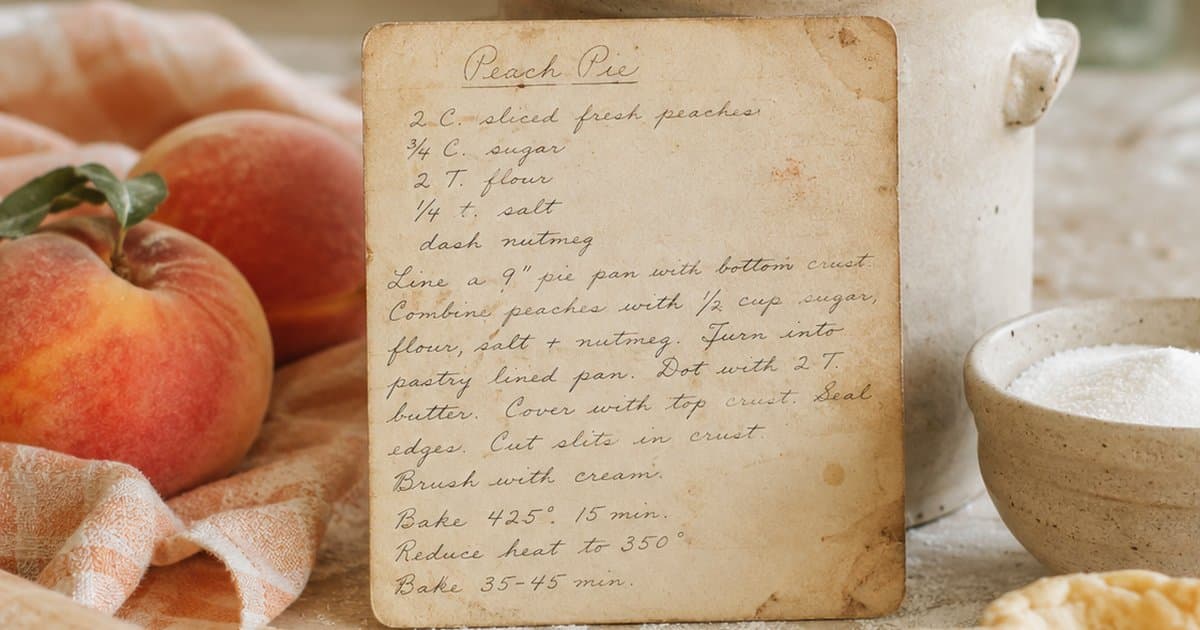 Peach Pie
2 C. sliced fresh peaches
3/4 C. sugar
2 T. flour
1/4 t. salt
dash nutmeg
Line a 9" pie pan with bottom crust.
Combine peaches with 1/2 cup sugar,
flour, salt + nutmeg. Turn into
pastry lined pan. Dot with 2 T.
butter. Cover with top crust. Seal
edges. Cut slits in crust.
Brush with cream.
Bake 425°. 15 min.
Reduce heat to 350°
Bake 35-45 min.